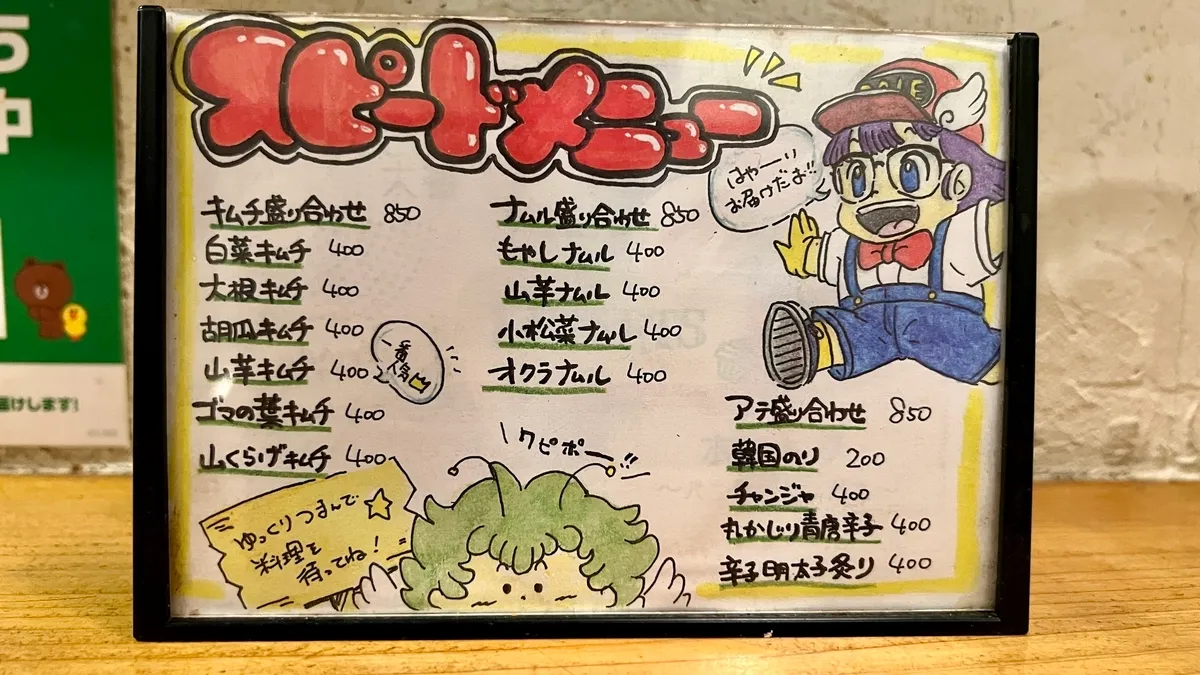 スピードメニュー
はやーい
お届けだお!!
キムチ盛り合わせ 850
白菜キムチ 400
大根キムチ 400
胡瓜キムチ 400
山芋キムチ 400
一番人気
ゴマの葉キムチ 400
山くらげキムチ 400
ナムル盛り合わせ 850
もやしナムル 400
山芋ナムル 400
小松菜ナムル 400
オクラナムル 400
アテ盛り合わせ 850
韓国のり 200
チャンジャ 400
丸かじり青唐辛子 400
辛子明太子炙り 400
クピポー!!
ゆっくりつまんで
料理を
待ってね!
中
届けします!